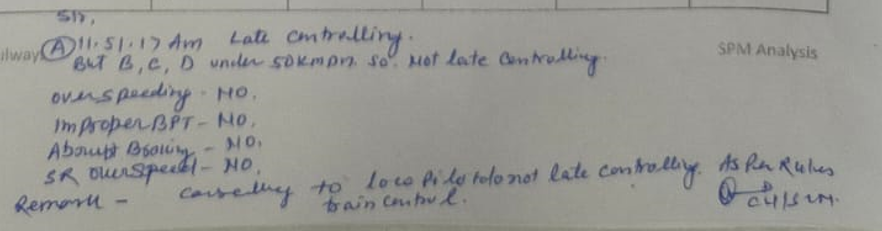 Sir,
ilway (A) 11.51.17 Am Late Controlling.
But B, C, D under 50 kmph. So. Not late Controlling.
SPM Analysis
Over speeding - NO.
Improper BPT - NO.
Abrupt Braking - NO.
SR over speed - NO.
Remark - to loco Pilot do not late controlling. As Per Rules
train control.